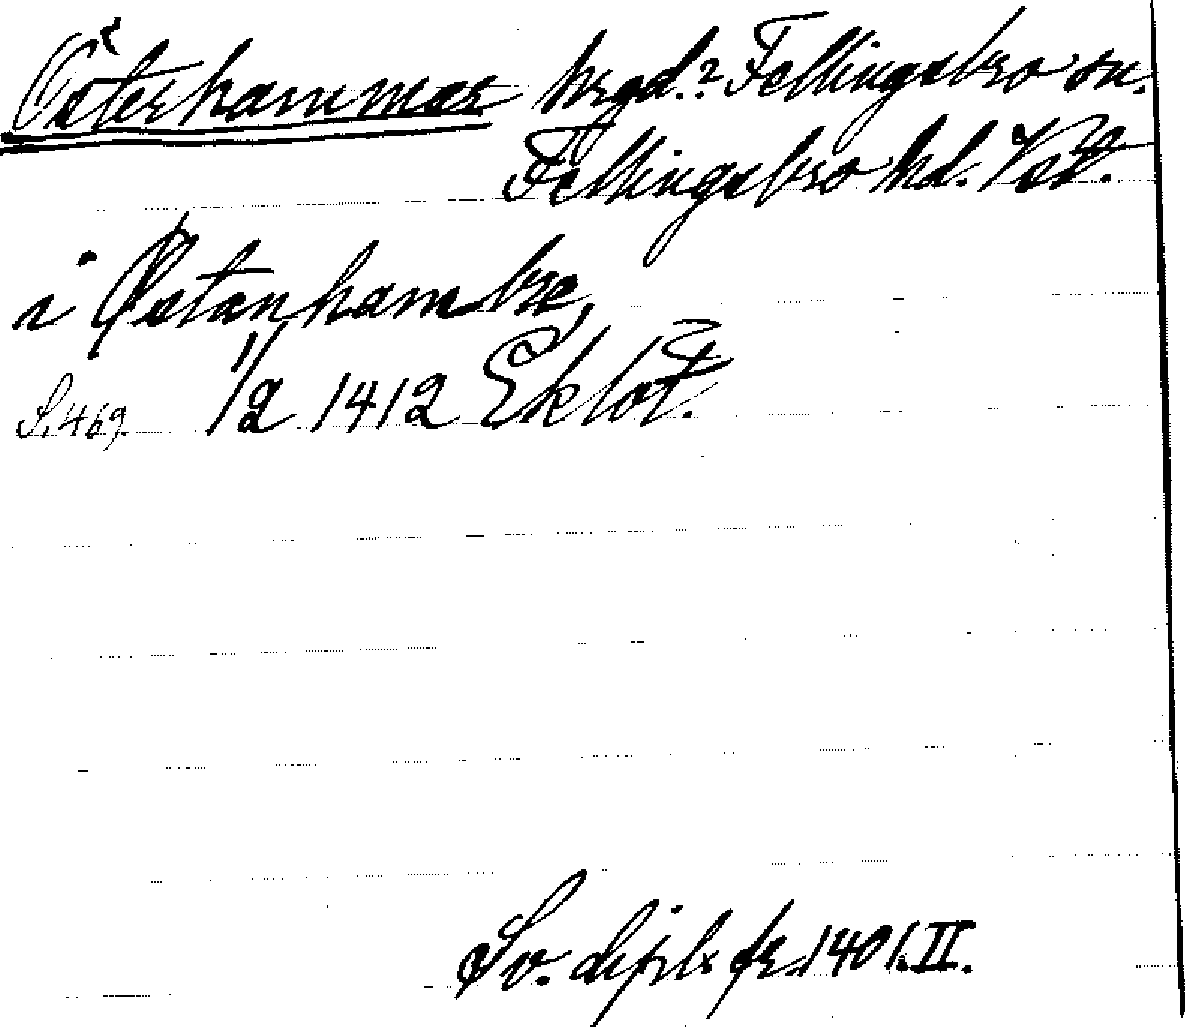 Österhammar hrgd.? Fellingsbro sn.
Fellingsbro hd. Vstl.
i Østanhambre,
S. 469. 1/2 1412 Eklöf.
Sv. dipl. fr. 1401. II.